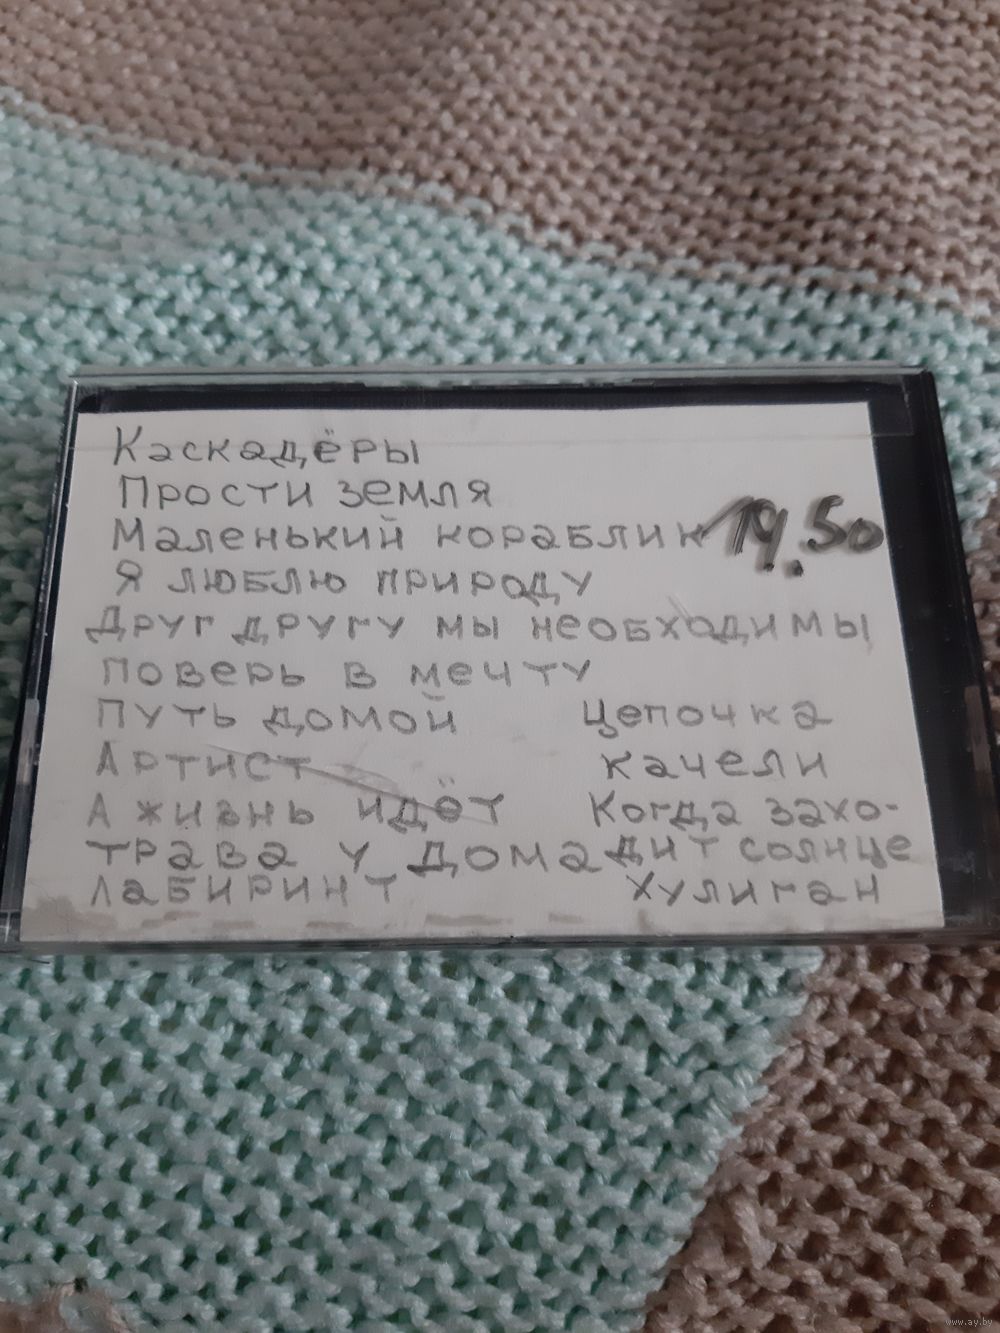 Каскадёры
Прости земля
Маленький кораблик 19.50
Я люблю природу
Друг другу мы необходимы
поверь в мечту
путь домой цепочка
Артист качели
А жизнь идёт Когда захо-
трава у дома дит солнце
лабиринт хулиган
www.ay.by